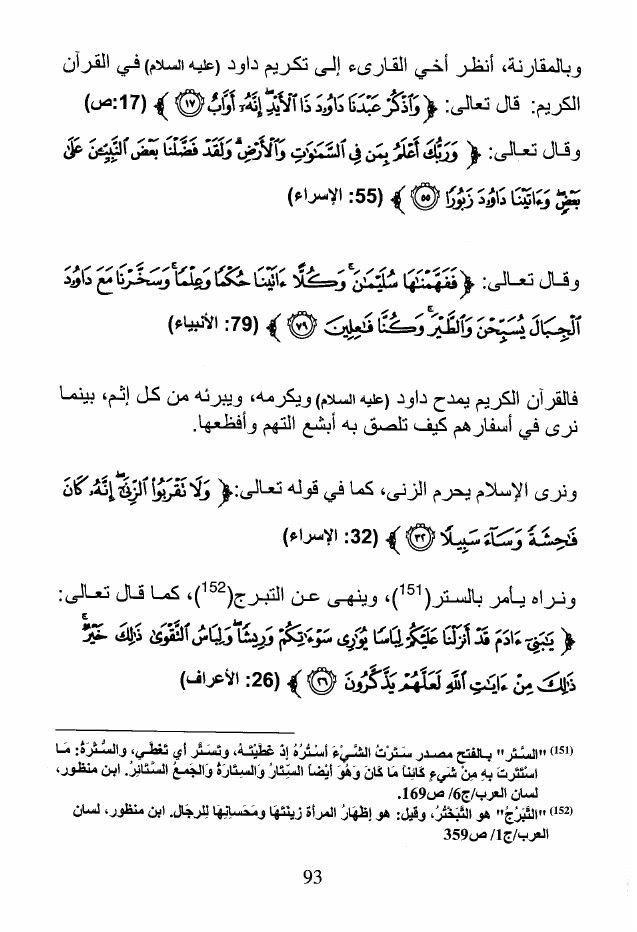 وبالمقارنة، أنظر أخي القارىء إلى تكريم داود (عليه السلام) في القرآن
الكريم: قال تعالى: ﴿ وَٱذْكُرْ عَبْدَنَا دَاوُۥدَ ذَا ٱلْأَيْدِ ۖ إِنَّهُۥٓ أَوَّابٌ ١٧ ﴾ (17:ص)
وقال تعالى: ﴿ وَرَبُّكَ أَعْلَمُ بِمَن فِى ٱلسَّمَٰوَٰتِ وَٱلْأَرْضِ ۗ وَلَقَدْ فَضَّلْنَا بَعْضَ ٱلنَّبِيِّۦنَ عَلَىٰ
بَعْضٍ ۖ وَءَاتَيْنَا دَاوُۥدَ زَبُورًا ٥٥ ﴾ (55: الإسراء)
وقال تعالى: ﴿ فَفَهَّمْنَٰهَا سُلَيْمَٰنَ ۚ وَكُلًّا ءَاتَيْنَا حُكْمًا وَعِلْمًا ۚ وَسَخَّرْنَا مَعَ دَاوُۥدَ
ٱلْجِبَالَ يُسَبِّحْنَ وَٱلطَّيْرَ ۚ وَكُنَّا فَٰعِلِينَ ٧٩ ﴾ (79: الأنبياء)
فالقرآن الكريم يمدح داود (عليه السلام) ويكرمه، ويبرئه من كل إثم، بينما
نرى في أسفارهم كيف تلصق به أبشع التهم وأفظعها.
ونرى الإسلام يحرم الزنى، كما في قوله تعالى:﴿ وَلَا تَقْرَبُوا۟ ٱلزِّنَىٰٓ ۖ إِنَّهُۥ كَانَ
فَٰحِشَةً وَسَآءَ سَبِيلًا ٣٢ ﴾ (32: الإسراء)
ونراه يأمر بالستر(151)، وينهى عن التبرج(152)، كما قال تعالى:
﴿ يَٰبَنِىٓ ءَادَمَ قَدْ أَنزَلْنَا عَلَيْكُمْ لِبَاسًا يُوَٰرِى سَوْءَٰتِكُمْ وَرِيشًا ۖ وَلِبَاسُ ٱلتَّقْوَىٰ ذَٰلِكَ خَيْرٌ ۚ
ذَٰلِكَ مِنْ ءَايَٰتِ ٱللَّهِ لَعَلَّهُمْ يَذَّكَّرُونَ ٢٦ ﴾ (26: الأعراف)
(151) "السَّتْر" بالفتح مصدر سَتَرْتُ الشَّيْءَ أَسْتُرُهُ إِذْ غَطَّيْتَهُ، وتَسَتَّر أي تَغَطَّى، والسُّتْرَةُ: مَا
اسْتَتَرْت بِهِ مِنْ شَيءٍ كَائِنًا مَا كَانَ وَهُوَ أيْضاً السِّتَارُ وَالسِتَارَةُ وَالجَمعُ السَّتَائِرُ. ابن منظور،
لسان العرب/ج6/ ص169.
(152) "التَّبَرُجُ" هو التَّبَخْتُرُ، وقيل: هو إِظْهَارُ المرأة زِينَتَهَا ومَحَسانِهَا لِلرِجَال. ابن منظور، لسان
العرب/ج1/ ص359
93